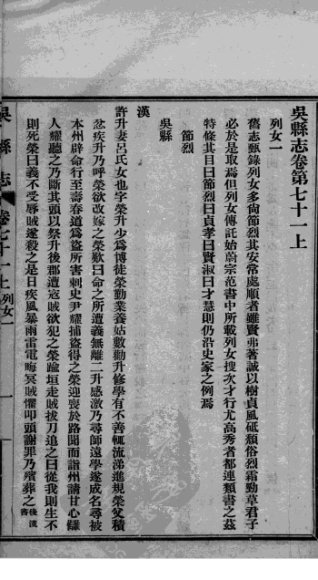 吳縣志卷第七十一上
列女一
舊志甄錄列女多尚節烈其安常處順者雖賢弗著誠以樹貞風砥頹俗烈霜勁草君子
必於是取焉但列女傳託始蔚宗范書中所載列女搜次才行尤高秀者都連類書之茲
特條其目曰節烈曰貞孝曰賢淑曰才慧則仍沿史家之例焉
節烈
吳縣
漢
許升妻呂氏女也字榮升少為博徒榮勤業養姑數勸升修學有不善輒流涕進規榮父積
忿疾升乃呼榮欲改嫁之榮歎曰命之所遭義無離二升感激乃尋師遠學遂成名尋被
本州辟命行至壽春道為盜所害刺史尹耀捕盜得之榮迎喪於路聞而詣州請甘心讎
人耀聽之乃斷其頭以祭升後郡遭寇賊欲犯之榮踰垣走賊拔刀追之曰從我則生不
則死榮曰義不受辱賊遂殺之是日疾風暴雨雷電晦冥賊懼叩頭謝罪乃殯葬之後漢書
吳縣志
卷七十一上
列女一